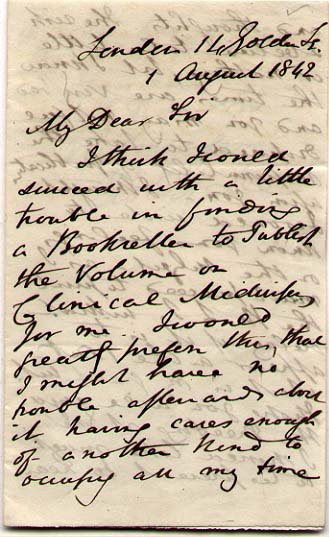 London 14 Golden Sq.
1 August 1842
My Dear Sir
I think I could
succeed with a little
trouble in finding
a Bookseller to Publish
the Volume on
Clinical Medicine
for me. I would
greatly prefer this, that
I might have no
trouble afterwards about
it having cares enough
of another kind to
occupy all my time